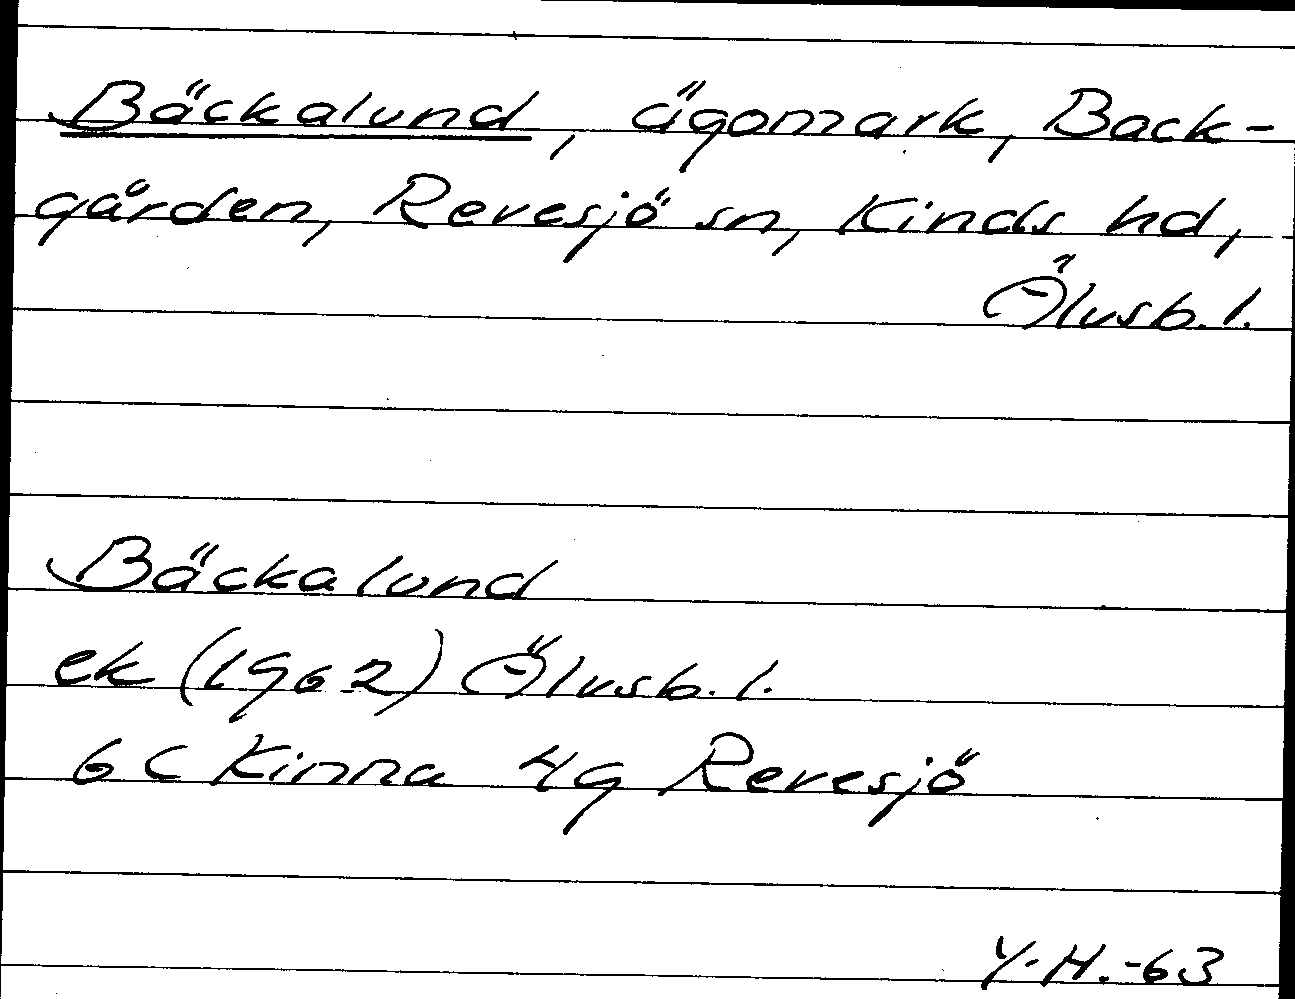 Bäckalund, ägomark, Back-
gården, Revesjö sn, Kinds hd,
Älvsb. l.
Bäckalund
ek (1962) Älvsb. l.
6C Kinna 4g Revesjö
Y.H.-63